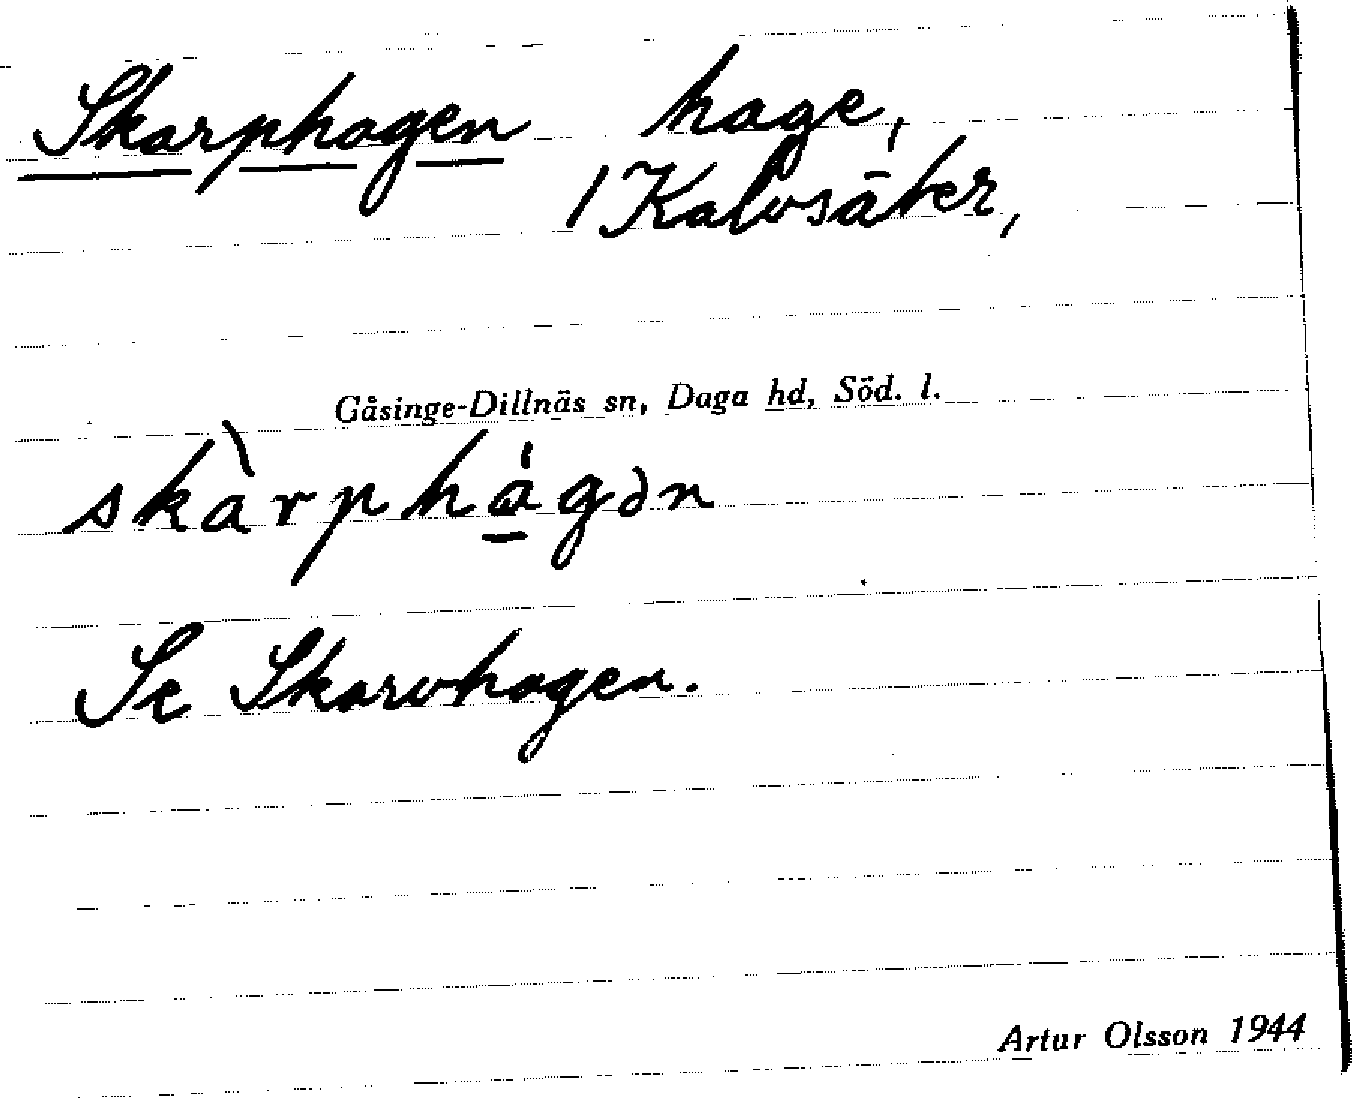 Skarphagen hage,
1 Kalvsäter,
Gåsinge-Dillnäs sn, Daga hd, Söd. l.
skàrphá̱gən
Se Skarvhagen.
Artur Olsson 1944